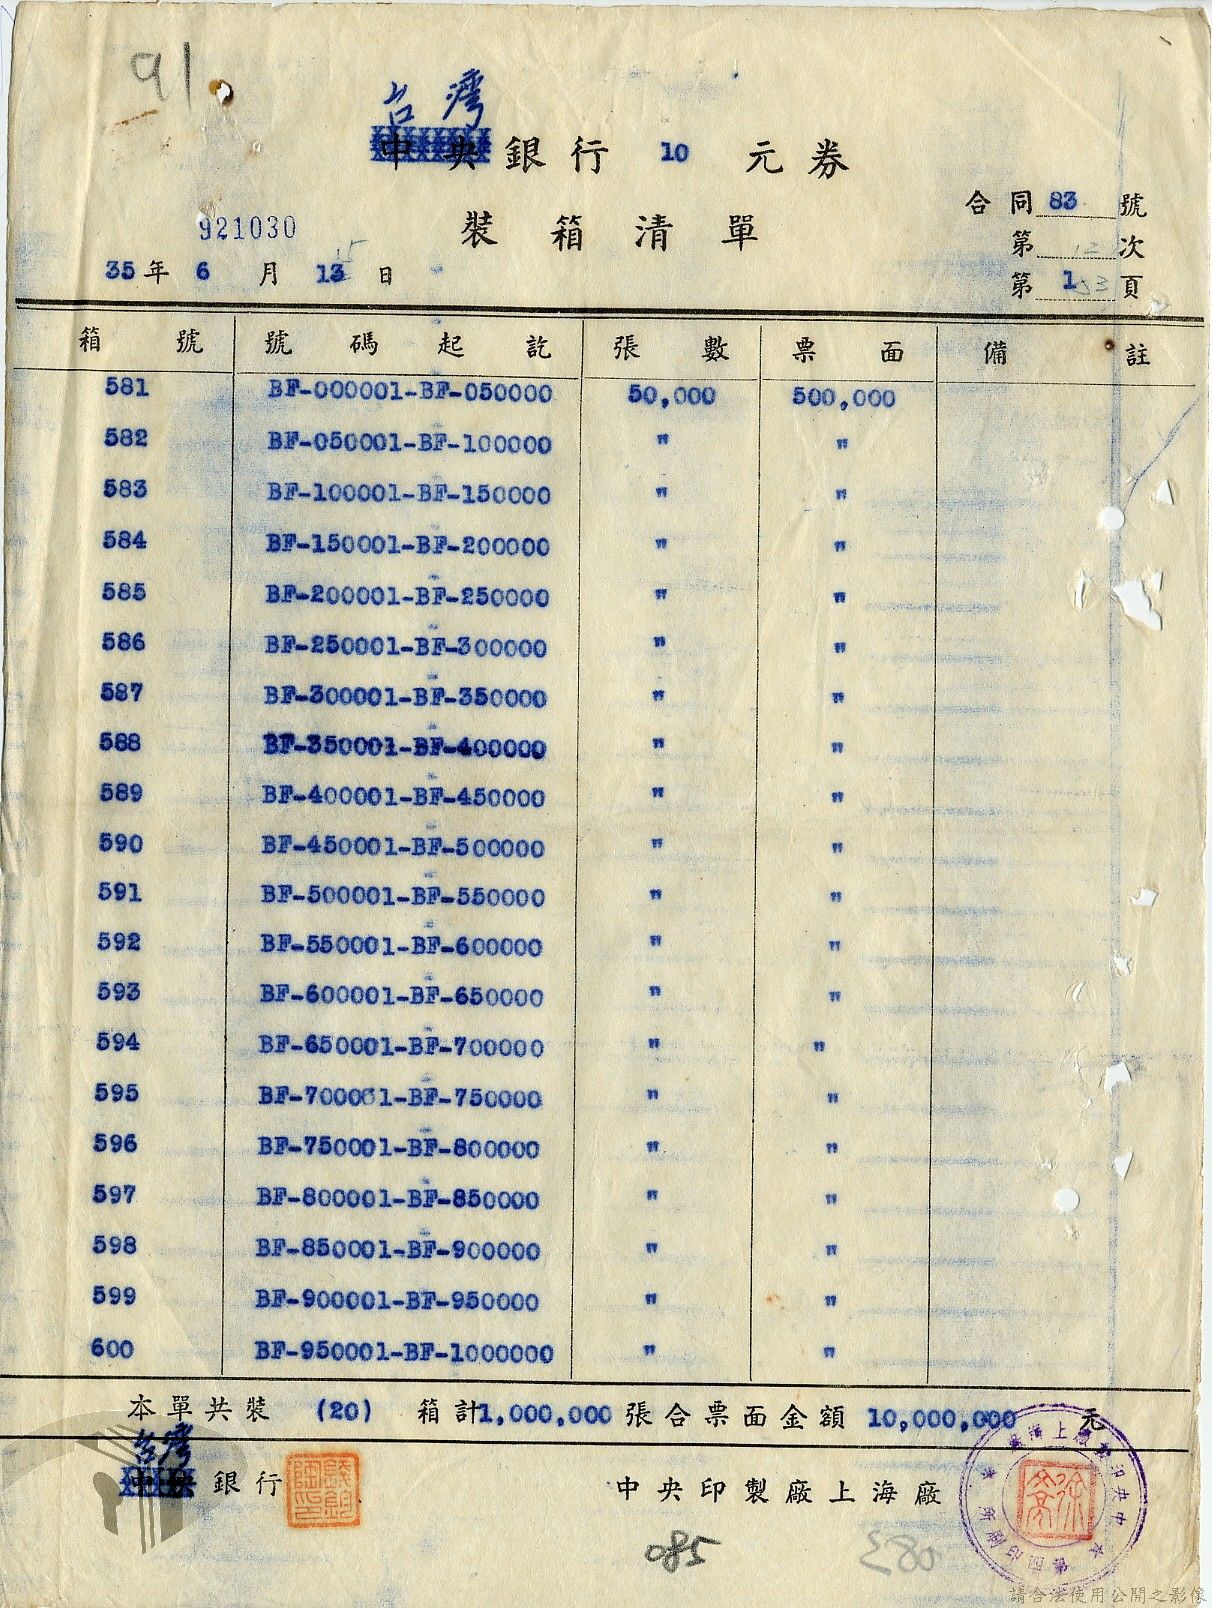 91
台灣
中央銀行 10 元券
合同 83 號
921030
裝箱清單
第 12 次
35年 6 月 13 日
15
第 1 53 頁
箱號 號碼起訖 張數 票面 備註
581 BF-000001-BF-050000 50,000 500,000
582 BF-050001-BF-100000 " "
583 BF-100001-BF-150000 " "
584 BF-150001-BF-200000 " "
585 BF-200001-BF-250000 " "
586 BF-250001-BF-300000 " "
587 BF-300001-BF-350000 " "
588 BF-350001-BF-400000 " "
589 BF-400001-BF-450000 " "
590 BF-450001-BF-500000 " "
591 BF-500001-BF-550000 " "
592 BF-550001-BF-600000 " "
593 BF-600001-BF-650000 " "
594 BF-650001-BF-700000 " "
595 BF-700001-BF-750000 " "
596 BF-750001-BF-800000 " "
597 BF-800001-BF-850000 " "
598 BF-850001-BF-900000 " "
599 BF-900001-BF-950000 " "
600 BF-950001-BF-1000000 " "
本單共裝 (20) 箱計1,000,000張合票面金額 10,000,000 元
台灣
中央銀行
中央印製廠上海廠
085
083
請合法使用公開之影像